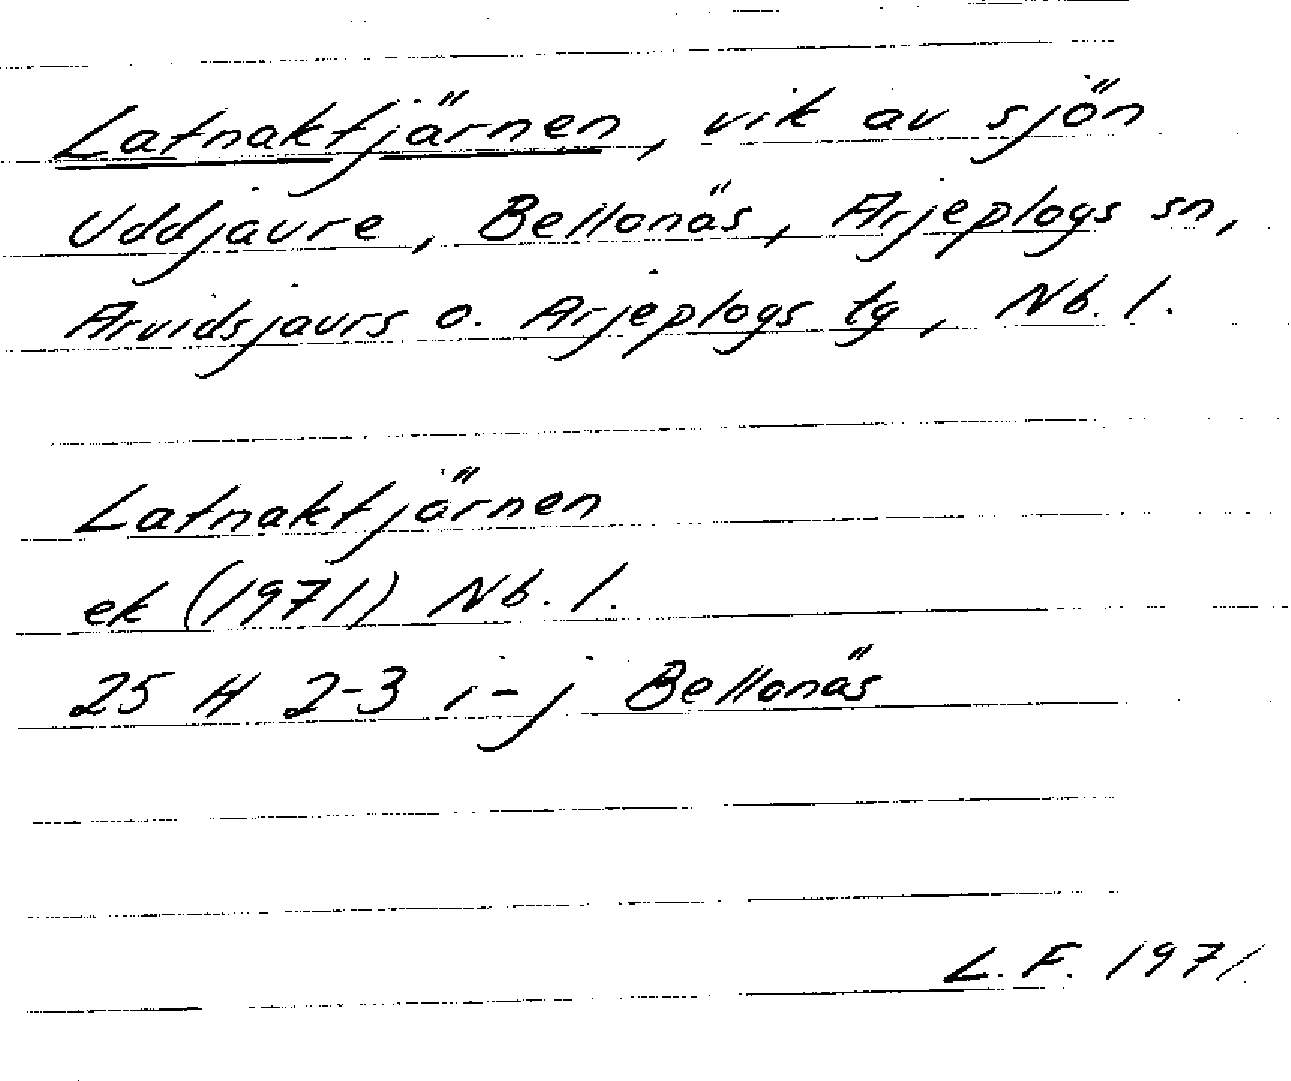 Latnaktjärnen, vik av sjön
Uddjaure, Bellonäs, Arjeplogs sn,
Arvidsjaurs o. Arjeplogs tg, Nb. l.
Latnaktjärnen
ek (1971) Nb. l.
25 H 2-3 i-j Bellonäs
L. F. 1971